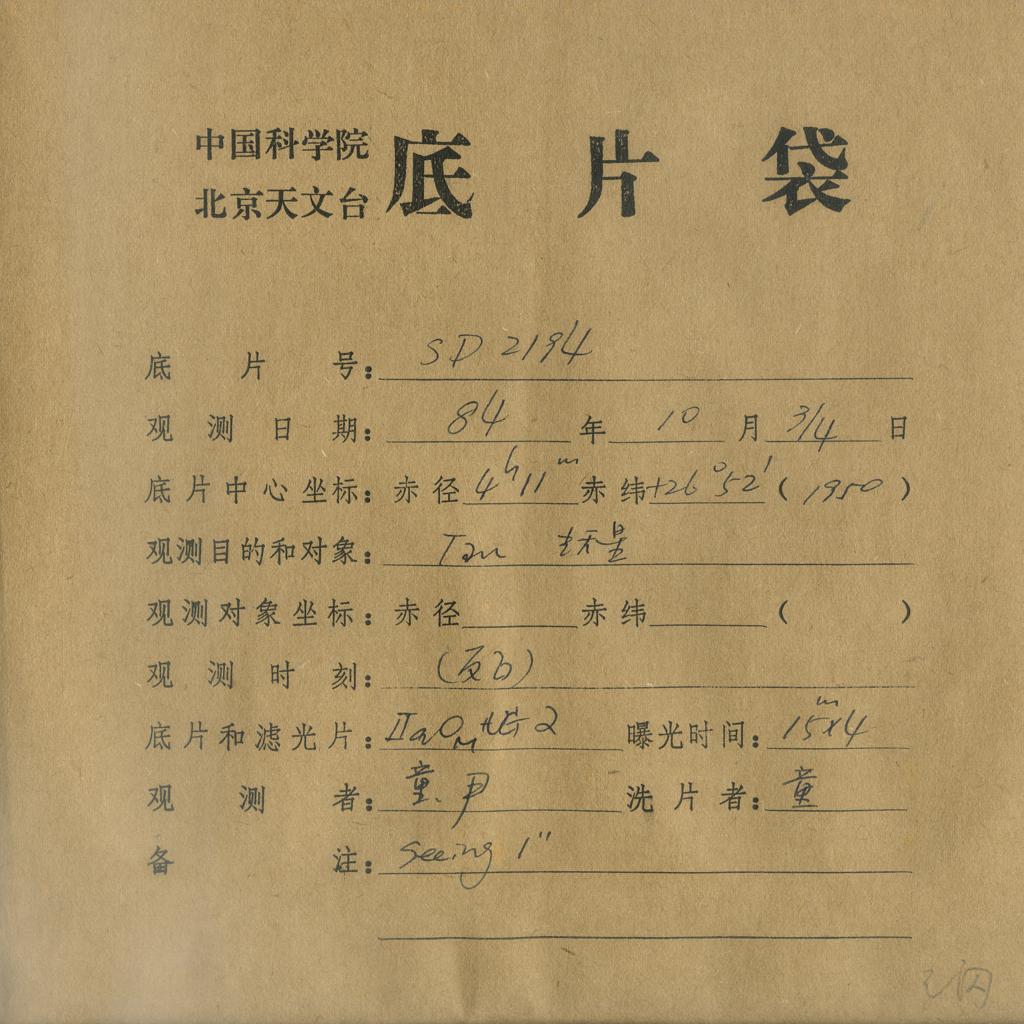 中国科学院
北京天文台
底片袋
底片号: SD 2194
观测日期: 84年10月3/4日
底片中心坐标: 赤径 4h11m 赤纬 +26°52′ (1950)
观测目的和对象: Tau 星
观测对象坐标: 赤径 赤纬 ( )
观测时刻:
底片和滤光片: IIaO 2 曝光时间: 15m×4
观测者: 童、尹 洗片者: 童
备注: Seeing 1″